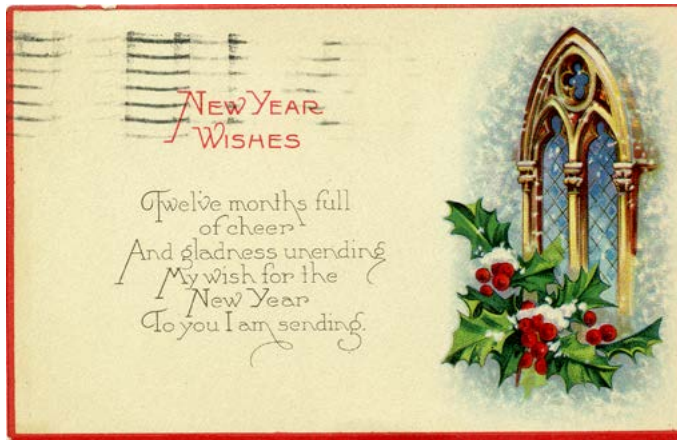 NEW YEAR
WISHES
Twelve months full
of cheer
And gladness unending
My wish for the
New Year
To you I am sending.